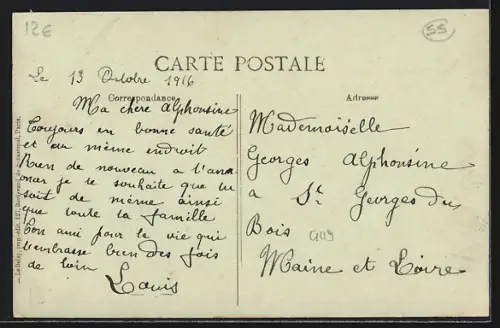 12€
55
CARTE POSTALE
Le 13 Octobre 1916
Correspondance
Ma chère Alphonsine
Toujours en bonne santé
et au même endroit
Rien de nouveau a t'ann
oncer je te souhaite que tu
soit de même ainsi
que toute ta famille
Ton ami pour la vie qui
t'embrasse bien des fois
de loin
Louis
Adresse
Mademoiselle
Georges Alphonsine
a St Georges du
Bois
909
Maine et Loire
Paris.